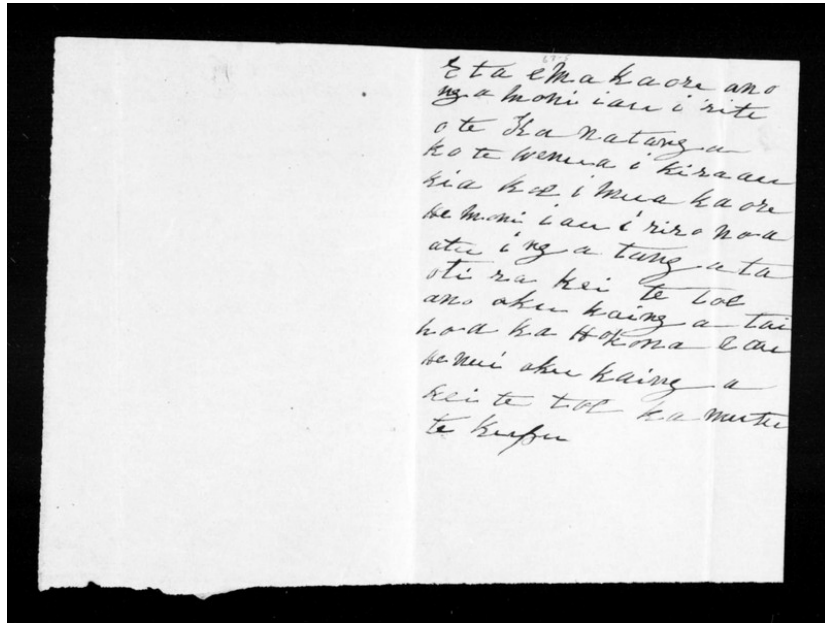 E ta ema kaore ano
nga moni i au i rite
o te Ka natanga
ko te wenua i kiraau
kia koe i mua kaore
he moni i au i riro noa
atu i nga tangata
oti ra kei te toe
ano oku kainga tai
hoa ka Hokona e au
he nui oku kainga
kei te toe ka mutu
te kupu